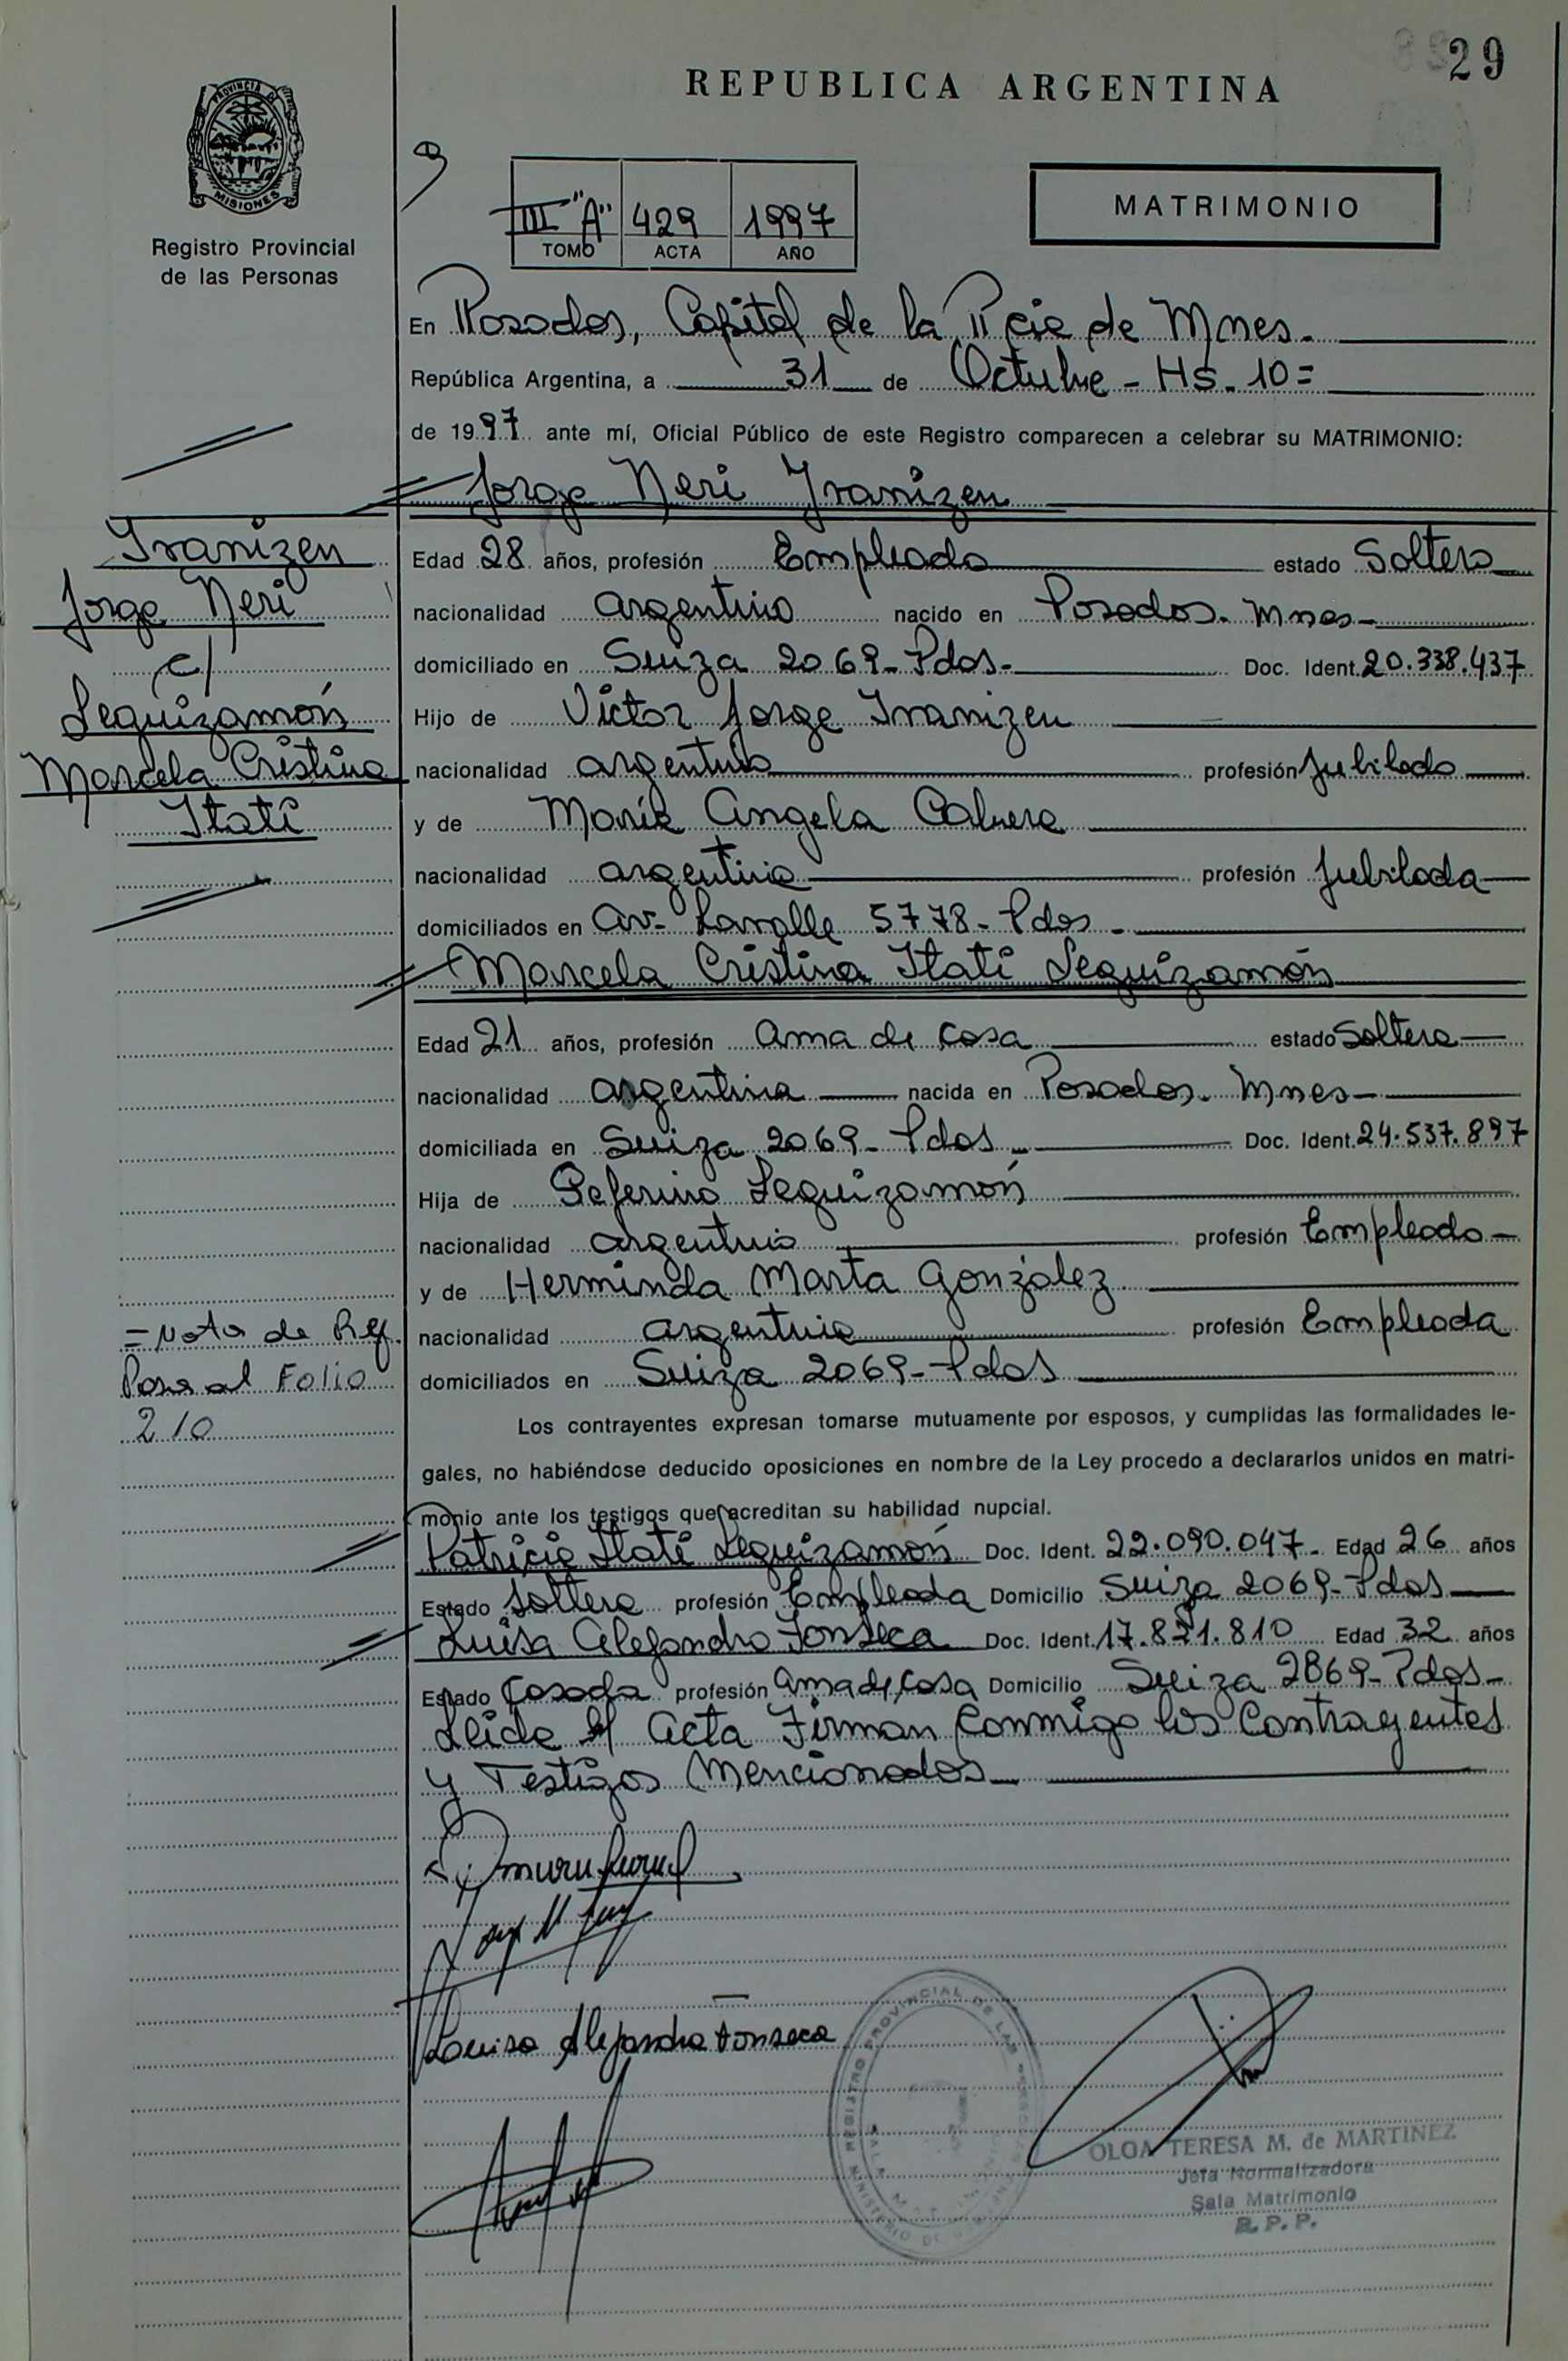 29
REPUBLICA ARGENTINA
PROVINCIA DE
MISIONES
Registro Provincial
de las Personas
III "A" 429 1997
TOMO ACTA AÑO
MATRIMONIO
En Posadas, Capital de la Pcia de Mnes.
República Argentina, a 31 de Octubre - Hs. 10=
de 1997 ante mí, Oficial Público de este Registro comparecen a celebrar su MATRIMONIO:
Jorge Neri Iranizen
Iranizen
Jorge Neri
c/
Leguizamón
Marcela Cristina
Itatí
Edad 28 años, profesión Empleado estado Soltero
nacionalidad argentino nacido en Posadas. Mnes-
domiciliado en Suiza 2069-Pdas- Doc. Ident. 20.338.437
Hijo de Victor Jorge Iranizen
nacionalidad argentino profesión Jubilado
y de María Angela Cabrera
nacionalidad argentina profesión Jubilada
domiciliados en Av- Lavalle 5778- Pdas -
Marcela Cristina Itatí Leguizamón
Edad 21 años, profesión Ama de Casa estado Soltera
nacionalidad argentina nacida en Posadas. Mnes-
domiciliada en Suiza 2069- Pdas - Doc. Ident. 24.537.897
Hija de Ceferino Leguizamón
nacionalidad argentino profesión Empleado-
y de Herminda Marta González
nacionalidad argentina profesión Empleada
domiciliados en Suiza 2069- Pdas
= Nota de Ref.
Pasa al Folio
210
Los contrayentes expresan tomarse mutuamente por esposos, y cumplidas las formalidades le-
gales, no habiéndose deducido oposiciones en nombre de la Ley procedo a declararlos unidos en matri-
monio ante los testigos que acreditan su habilidad nupcial.
Patricia Itatí Leguizamón Doc. Ident. 22.090.047- Edad 26 años
Estado Soltera profesión Empleada Domicilio Suiza 2069-Pdas
Luisa Alejandra Fonseca Doc. Ident. 17.821.810 Edad 32 años
Estado Casada profesión Ama de Casa Domicilio Suiza 2869-Pdas-
Leida el Acta Firman Conmigo los Contrayentes
y Testigos Mencionados
Louisa Alejandra Fonseca
REGISTRO PROVINCIAL DE LAS PERSONAS
MINISTERIO DE GOBIERNO
OLGA TERESA M. de MARTINEZ
Jefa Normalizadora
Sala Matrimonio
R. P. P.